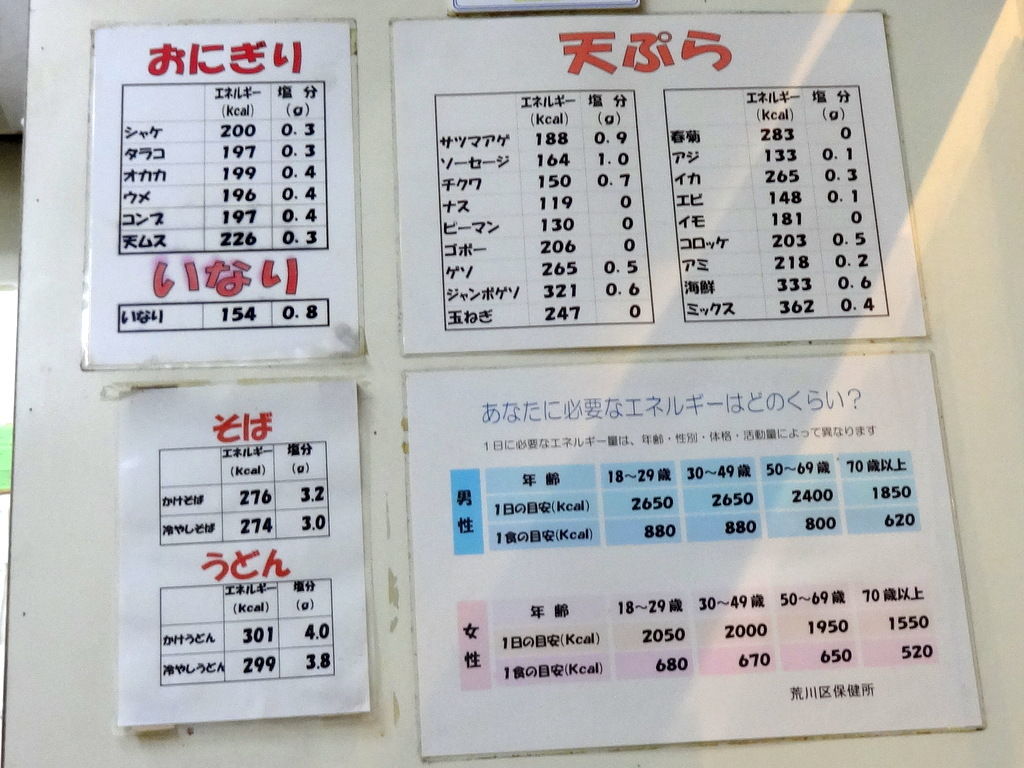 おにぎり
エネルギー(Kcal) 塩分(g)
シャケ 200 0.3
タラコ 197 0.3
オカカ 199 0.4
ウメ 196 0.4
コンブ 197 0.4
天ムス 226 0.3
いなり
いなり 154 0.8
天ぷら
エネルギー(Kcal) 塩分(g)
サツマアゲ 188 0.9
ソーセージ 164 1.0
チクワ 150 0.7
ナス 119 0
ピーマン 130 0
ゴボー 206 0
ゲソ 265 0.5
ジャンボゲソ 321 0.6
玉ねぎ 247 0
エネルギー(Kcal) 塩分(g)
春菊 283 0
アジ 133 0.1
イカ 265 0.3
エビ 148 0.1
イモ 181 0
コロッケ 203 0.5
アミ 218 0.2
海鮮 333 0.6
ミックス 362 0.4
そば
エネルギー(Kcal) 塩分(g)
かけそば 276 3.2
冷やしそば 274 3.0
うどん
エネルギー(Kcal) 塩分(g)
かけうどん 301 4.0
冷やしうどん 299 3.8
あなたに必要なエネルギーはどのくらい?
1日に必要なエネルギー量は、年齢・性別・体格・活動量によって異なります
男性
年齢 18~29歳 30~49歳 50~69歳 70歳以上
1日の目安(Kcal) 2650 2650 2400 1850
1食の目安(Kcal) 880 880 800 620
女性
年齢 18~29歳 30~49歳 50~69歳 70歳以上
1日の目安(Kcal) 2050 2000 1950 1550
1食の目安(Kcal) 680 670 650 520
荒川区保健所